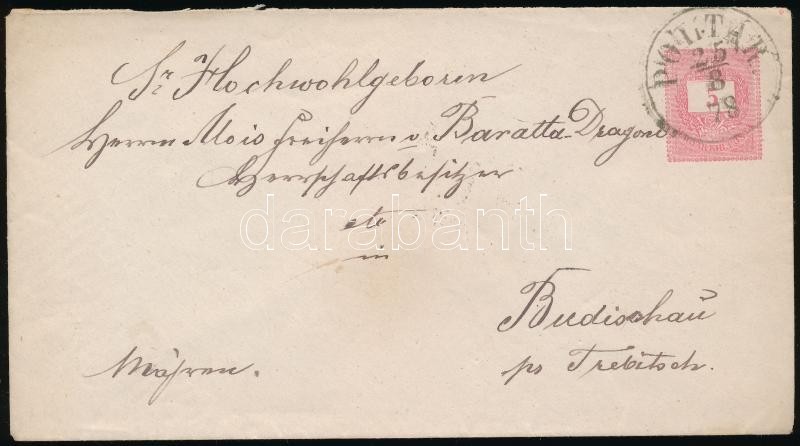 Sr Hochwohlgeboren
Herrn Alois Freiherrn v. Baratta-Dragono
Herrschaftsbesitzer
etc
in
Budischau
pr Trebitsch.
Mähren.
25
8
78
5
darabanth